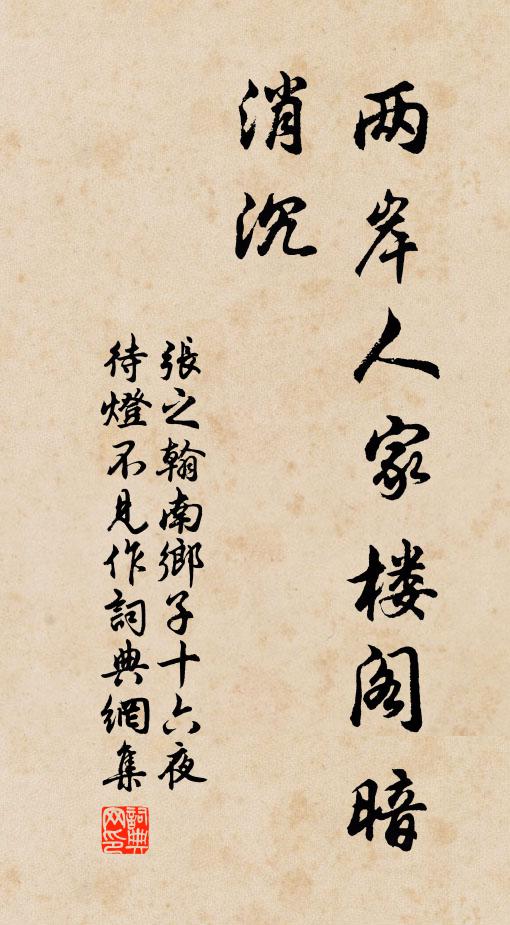 两岸人家楼阁暗
消沉
張之翰南鄉子十六夜
待燈不見作詞典網集
詞典
网印